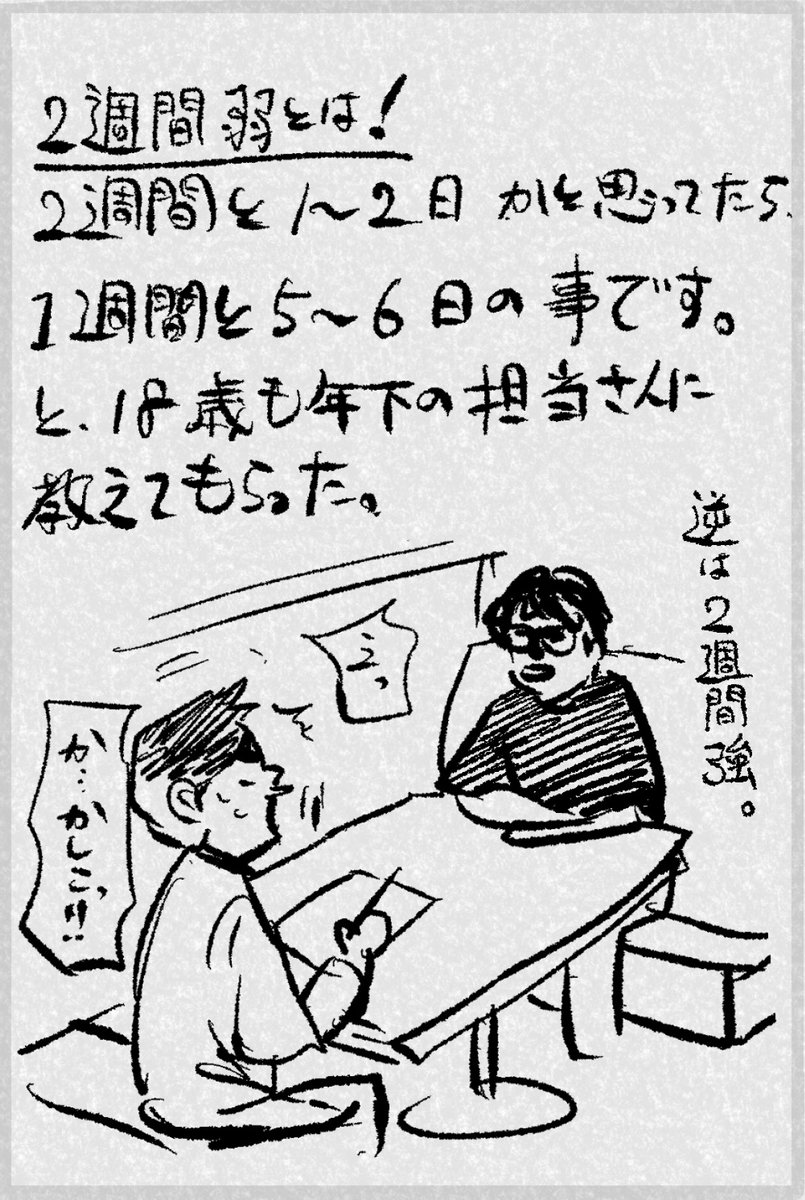 2週間弱とは!
2週間と1〜2日かと思ってたら、
1週間と5〜6日の事です。
と、18歳も年下の担当さんに
教えてもらった。
逆は2週間強。
えっ
か…かしこっ!!